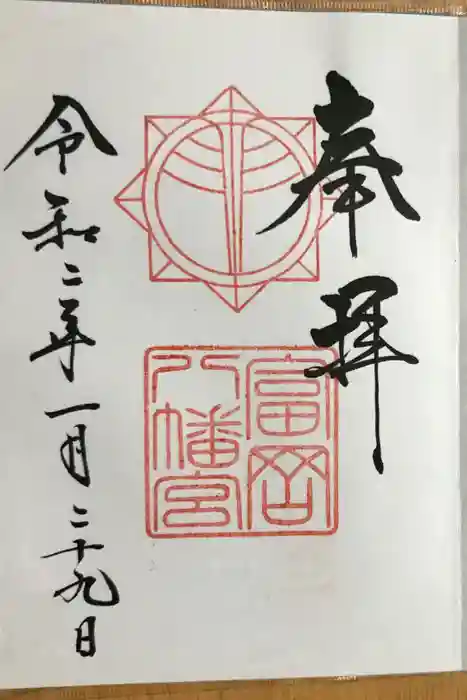 奉拝
富岡
八幡宮
令和二年一月二十九日